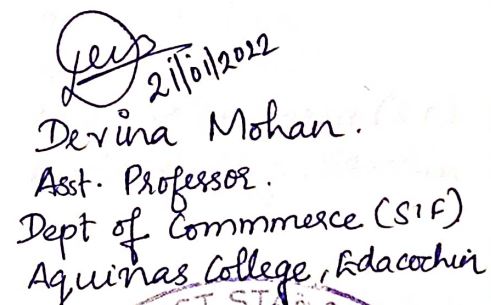 21/01/2022
Devina Mohan.
Asst. Professor.
Dept of Commmerce (SIF)
Aquinas College, Edacochin